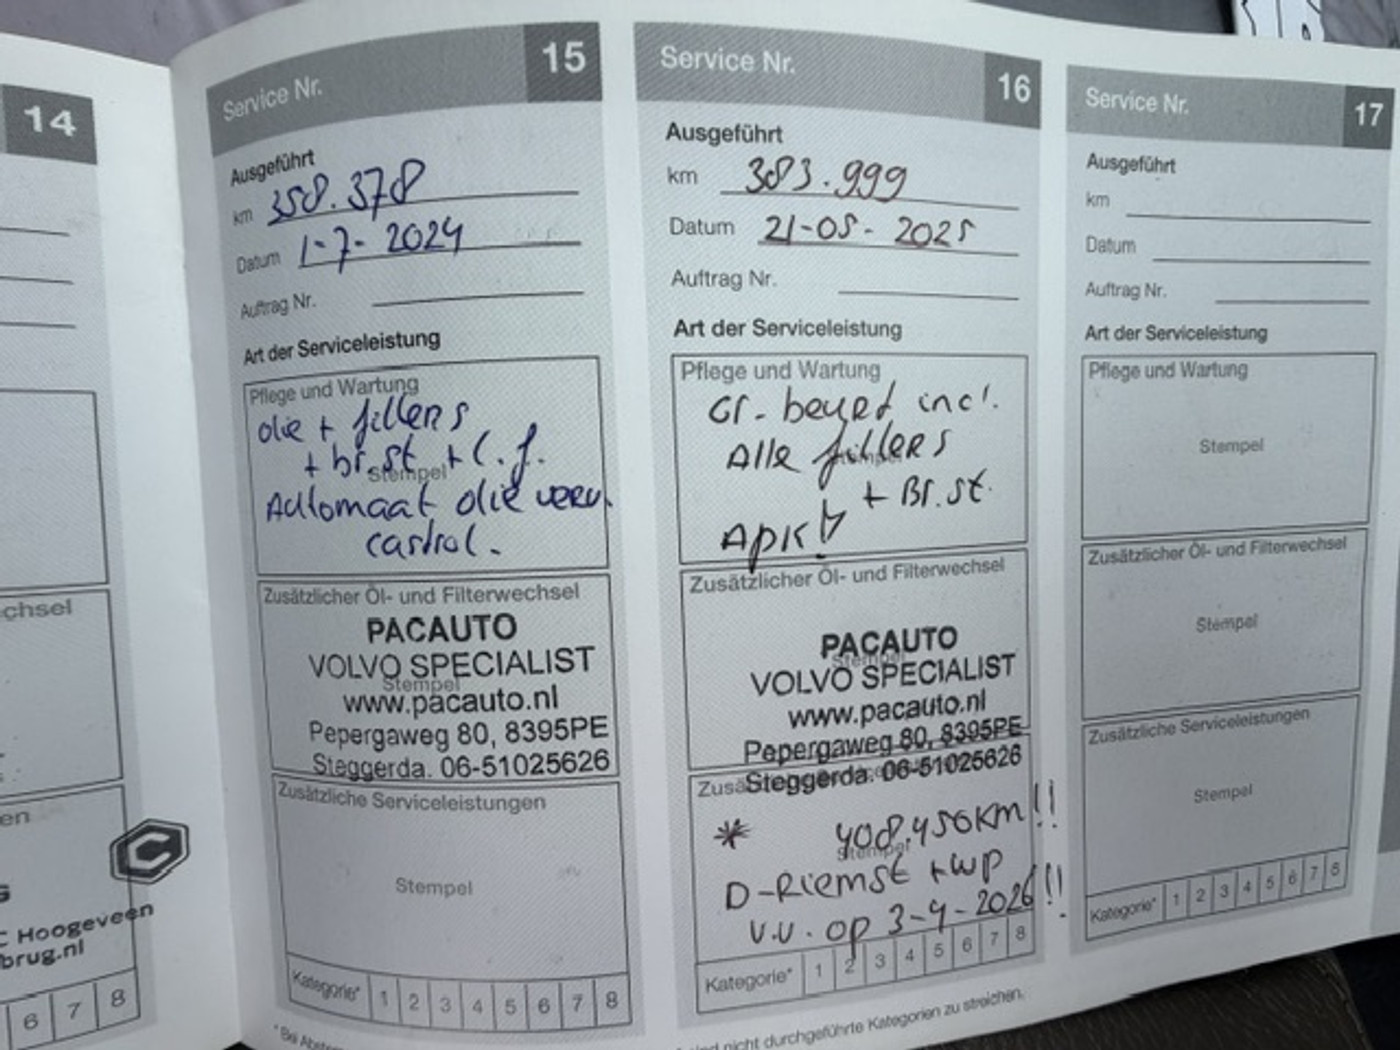 14
chsel
en
C Hoogeveen
brug.nl
6 7 8
Service Nr. 15
Ausgeführt
km 358.378
Datum 1-7-2024
Auftrag Nr.
Art der Serviceleistung
Pflege und Wartung
olie + filters
+ br.st + l.f.
Stempel
Automaat olie verv.
castrol.
Zusätzlicher Öl- und Filterwechsel
PACAUTO
VOLVO SPECIALIST
Stempel
www.pacauto.nl
Pepergaweg 80, 8395PE
Steggerda. 06-51025626
Zusätzliche Serviceleistungen
Stempel
Kategorie* 1 2 3 4 5 6 7 8
* Bei
Service Nr. 16
Ausgeführt
km 383.999
Datum 21-05-2025
Auftrag Nr.
Art der Serviceleistung
Pflege und Wartung
Gr. beurt incl.
Alle filters
Stempel
+ Br.st.
APK
Zusätzlicher Öl- und Filterwechsel
PACAUTO
Stempel
VOLVO SPECIALIST
www.pacauto.nl
Pepergaweg 80, 8395PE
Steggerda. 06-51025626
* 408.450km!!
Stempel
D-Riemst + wp
v.v. op 3-4-2026!!
Kategorie* 1 2 3 4 5 6 7 8
sind nicht durchgeführte Kategorien zu streichen.
Service Nr. 17
Ausgeführt
km
Datum
Auftrag Nr.
Art der Serviceleistung
Pflege und Wartung
Stempel
Zusätzlicher Öl- und Filterwechsel
Stempel
Zusätzliche Serviceleistungen
Stempel
Kategorie* 1 2 3 4 5 6 7 8